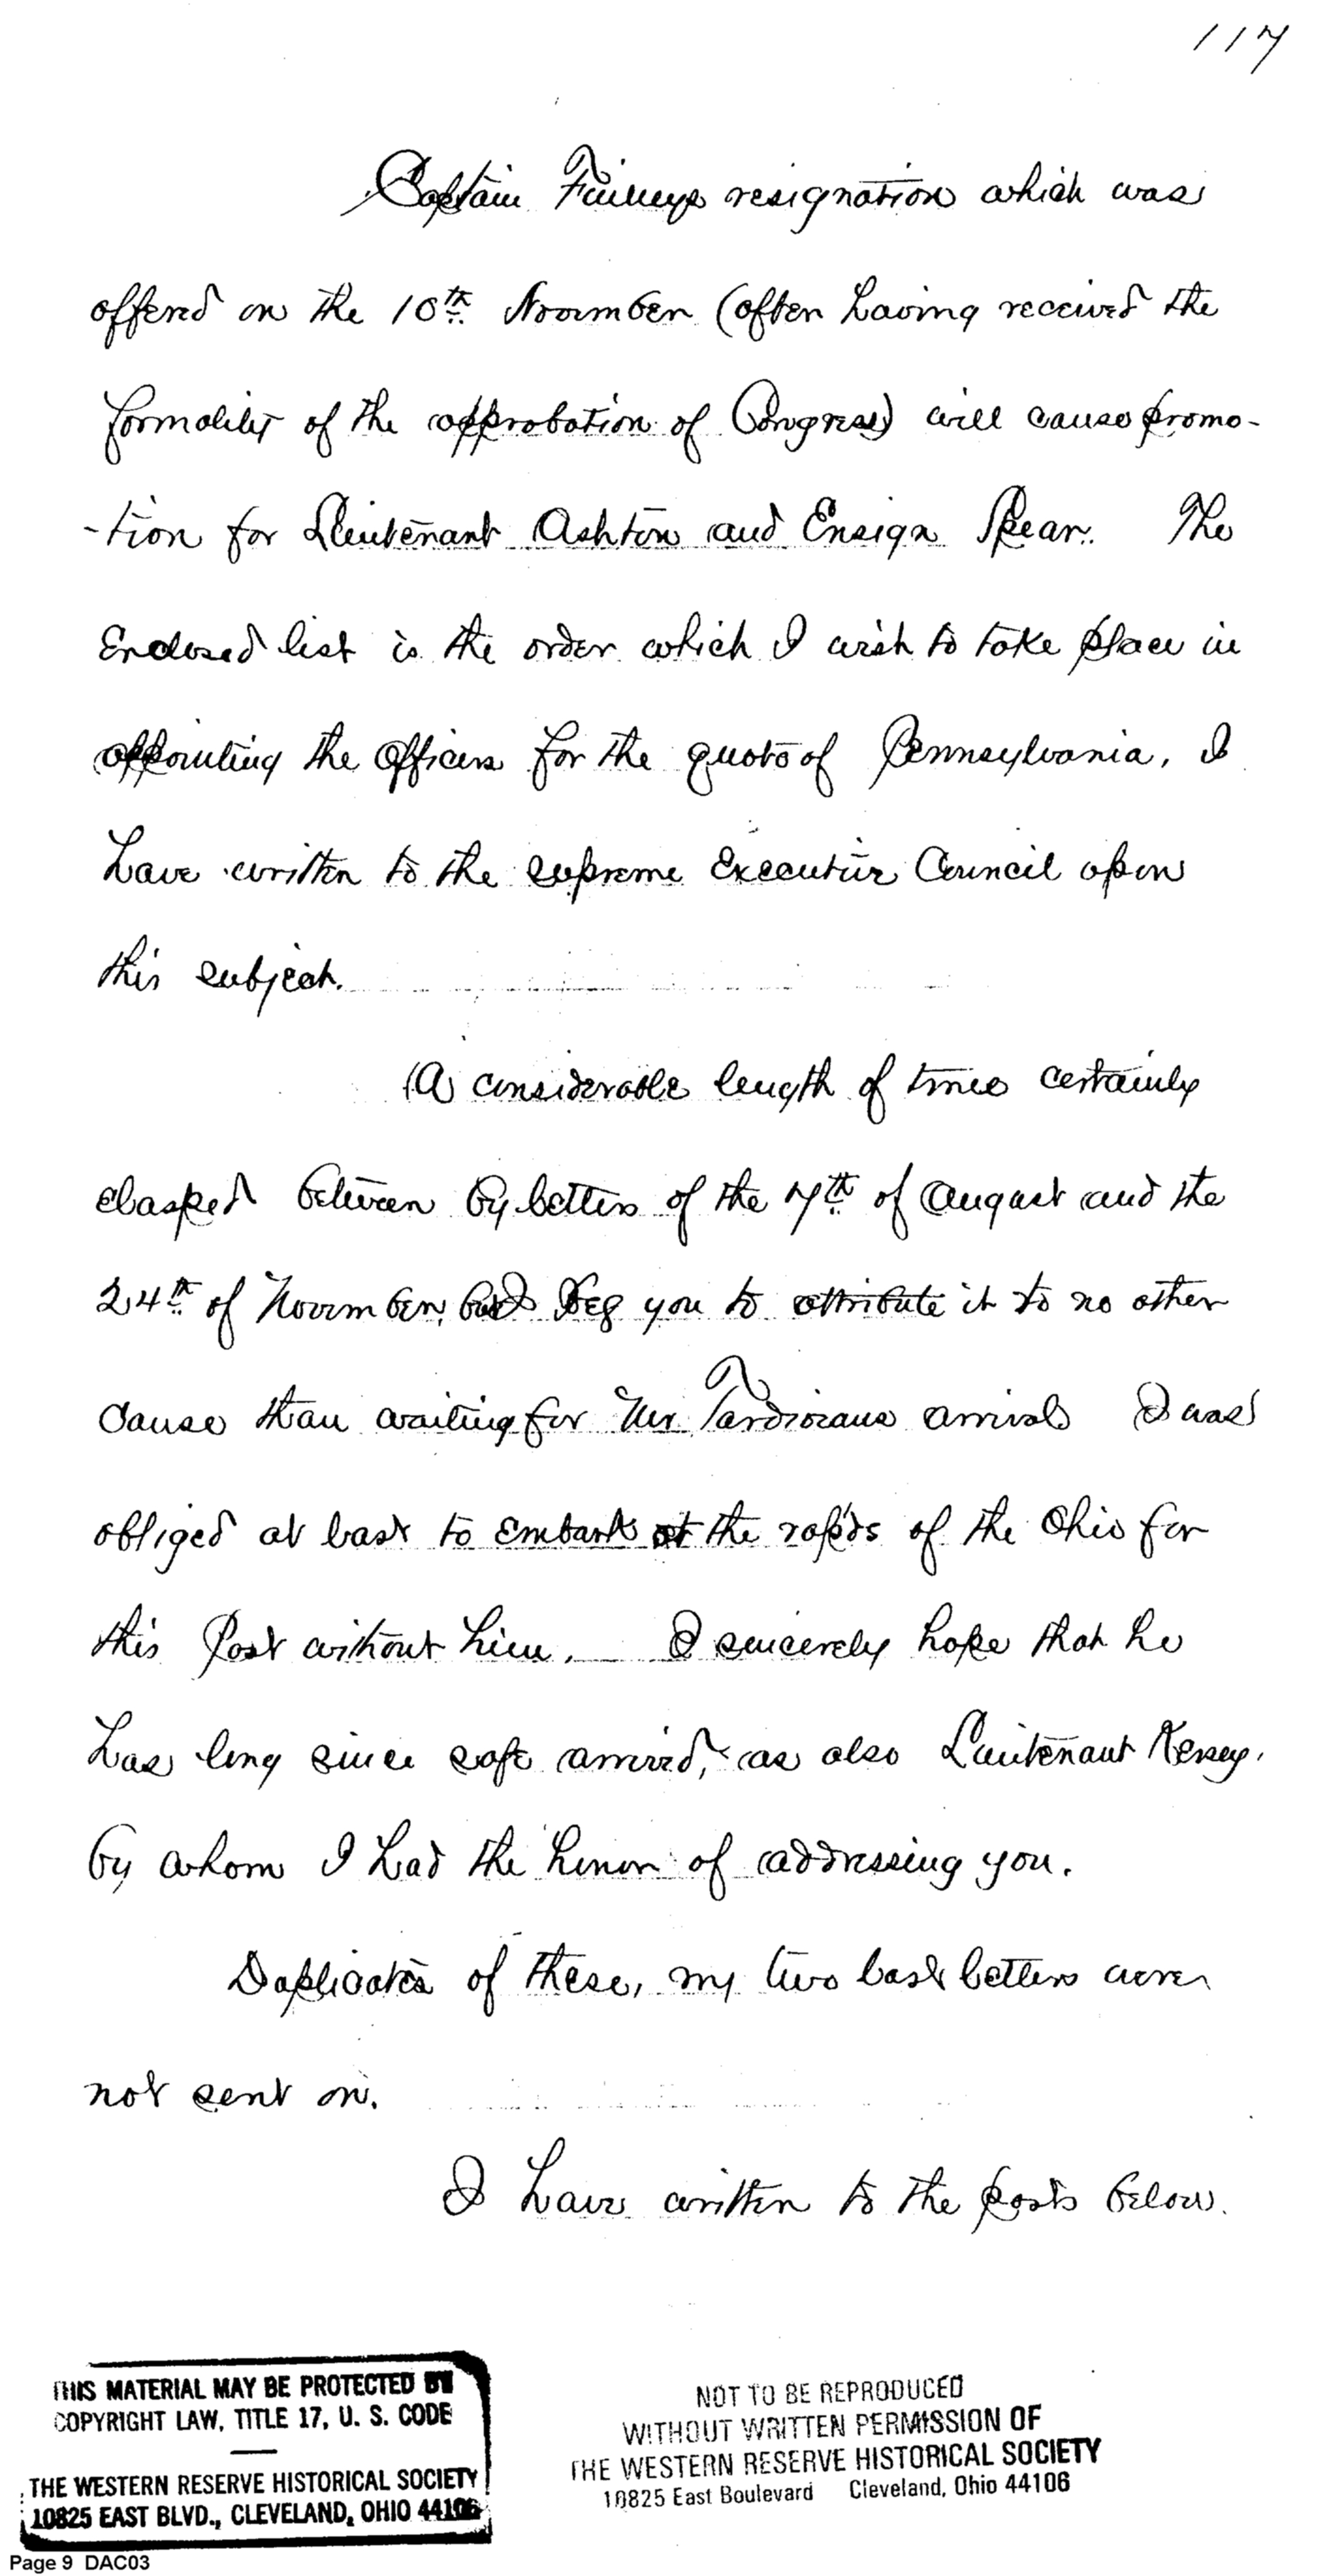 117
Captain Finneys resignation which was
offered on the 10th November (after having received the
formality of the approbation of Congress) will cause promo-
-tion for Lieutenant Ashton and Ensign Spear. The
Enclosed list is the order which I wish to take place in
appointing the Officers for the quota of Pennsylvania, I
have written to the supreme Executive Council upon
this subject.
A considerable length of time certainly
elapsed between by letters of the 7th of August and the
24th of November, but I beg you to attribute it to no other
cause than waiting for Mr Tardiveaus arrival I was
obliged at last to embark at the rapids of the Ohio for
this Post without him. I sincerely hope that he
has long since safe arrived, as also Lieutenant Kersey,
by whom I had the honor of addressing you.
Duplicates of these, my two last letters were
not sent on.
I have written to the posts below.
THIS MATERIAL MAY BE PROTECTED BY
COPYRIGHT LAW, TITLE 17, U. S. CODE
THE WESTERN RESERVE HISTORICAL SOCIETY
10825 EAST BLVD., CLEVELAND, OHIO 44106
NOT TO BE REPRODUCED
WITHOUT WRITTEN PERMISSION OF
THE WESTERN RESERVE HISTORICAL SOCIETY
10825 East Boulevard Cleveland, Ohio 44106
Page 9 DAC03